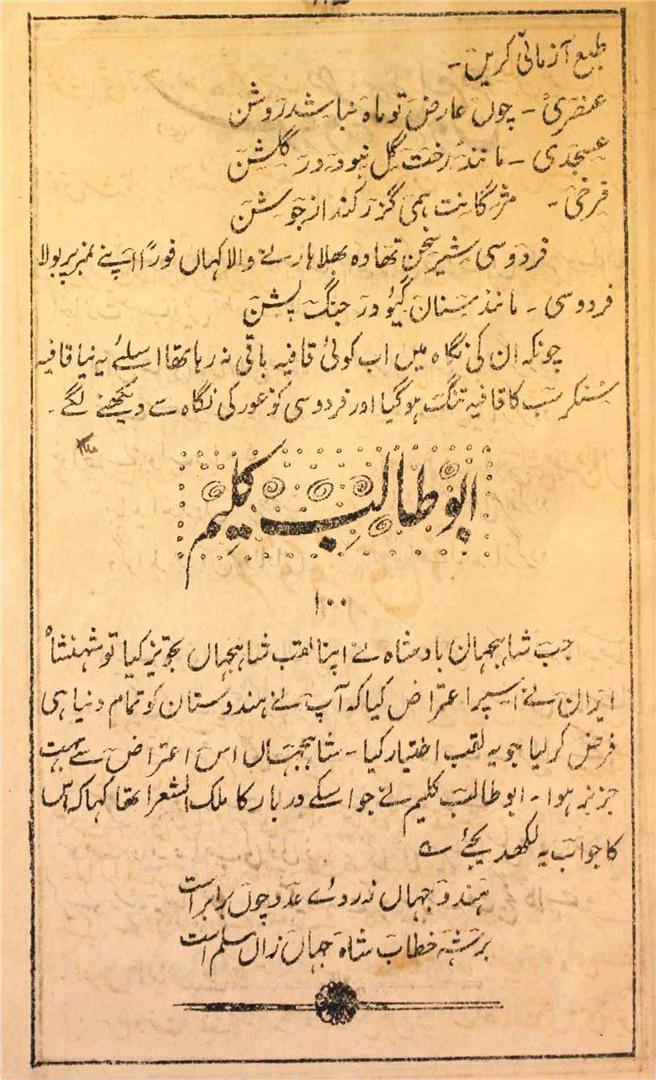 طبع آزمائی کریں۔
عنصری ۔ چوں عارض تو ماہ نباشد روشن
عسجدی ۔ مانند رخت گل نبود در گلشن
فرخی ۔ مژگانت ہمی گزر کند از جوشن
فردوسی شیر سخن تھا وہ بھلا ہارنے والا کہاں فوراً اپنے نمبر پر بولا
فردوسی ۔ مانند سنان گیو در جنگ پشن
چونکہ ان کی نگاہ میں اب کوئی قافیہ باقی نہ رہا تھا اسلئے یہ نیا قافیہ
سنکر سب کا قافیہ تنگ ہوگیا اور فردوسی کو غور کی نگاہ سے دیکھنے لگے۔
ابو طالب کلیم
۱۰۰
جب شاہجہان بادشاہ نے اپنا لقب شاہجہاں تجویز کیا تو شہنشاہ
ایران نے اسپر اعتراض کیا کہ آپ نے ہندوستان کو تمام دنیا ہی
فرض کر لیا جو یہ لقب اختیار کیا۔ شاہجہاں اس اعتراض سے بہت
جزبز ہوا۔ ابو طالب کلیم نے جو اسکے دربار کا ملک الشعرا تھا کہا کہ اس
کا جواب یہ لکھدیجئے ؎
ہند و جہاں ز روئے عدد چوں برابر است
بر شہ خطاب شاہ جہاں زاں مسلم است